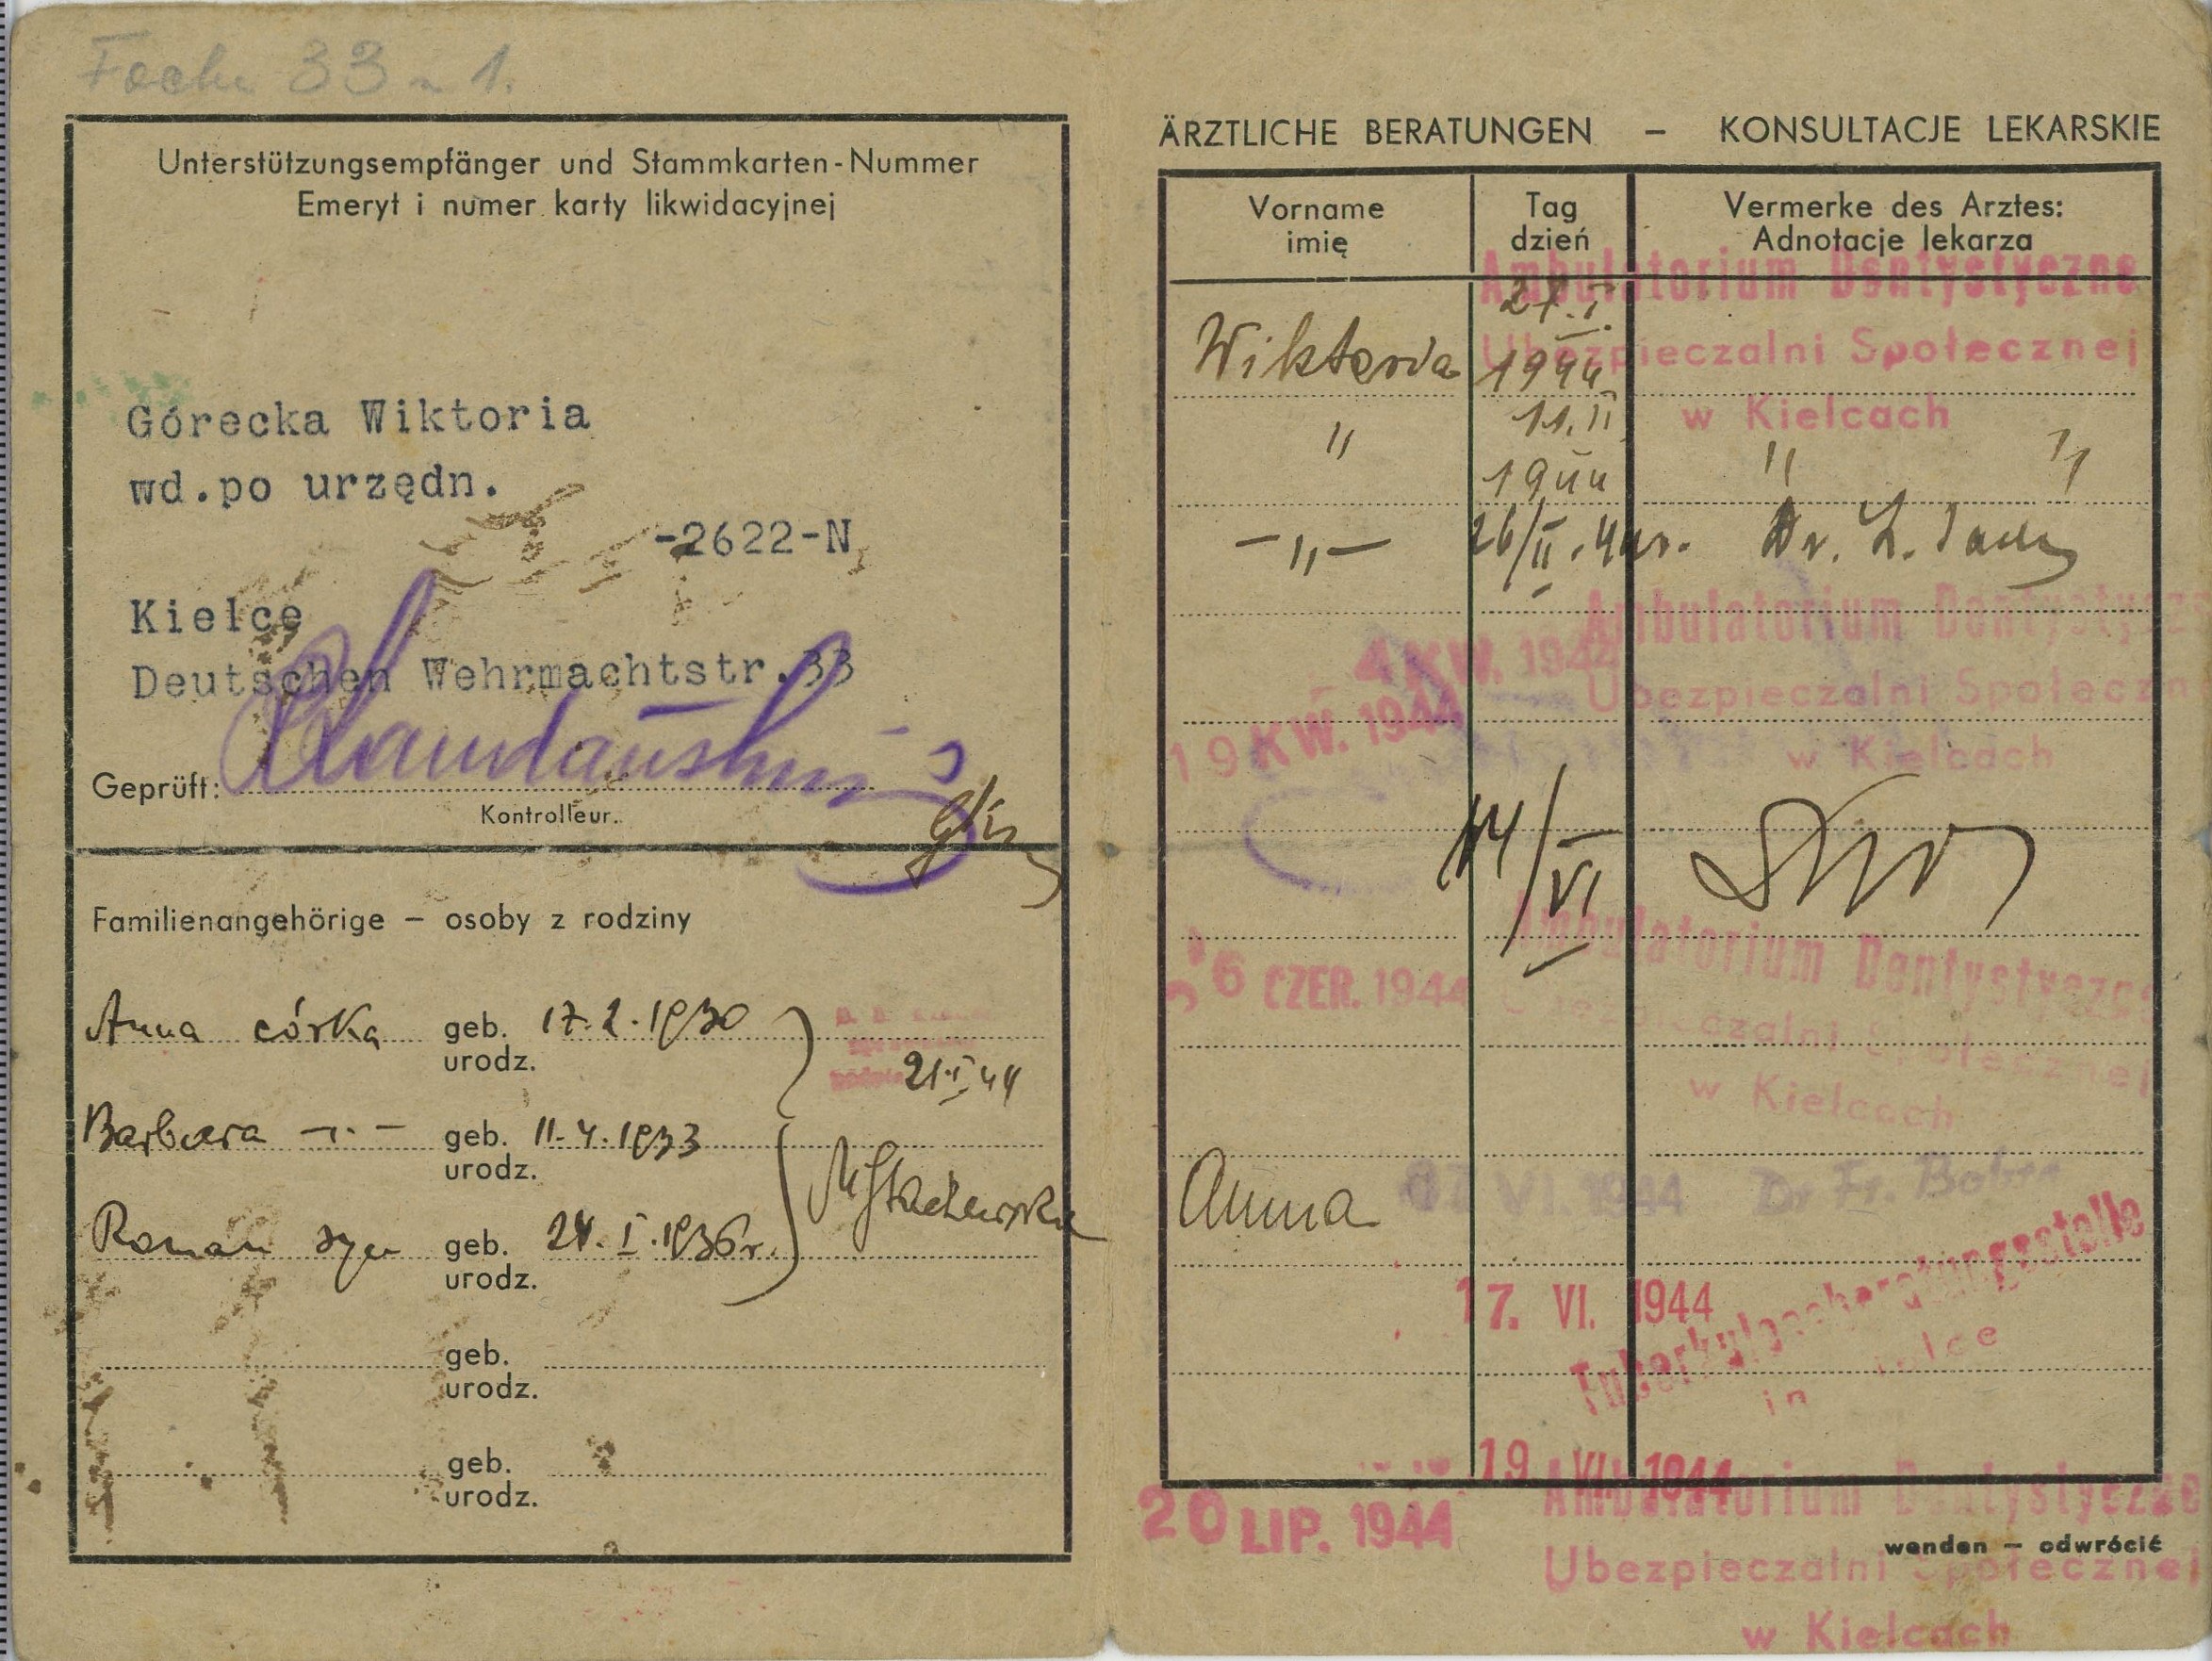 33 1.
Unterstützungsempfänger und Stammkarten-Nummer
Emeryt i numer karty likwidacyjnej
Górecka Wiktoria
wd.po urzędn.
-2622-N
Kielce
Deutschen Wehrmachtstr.33
Geprüft:
Kontrolleur.
Familienangehörige – osoby z rodziny
Anna córka geb. 17.2.1930
urodz.
21.I.44
Barbara –"– geb. 11.4.1933
urodz.
Roman syn geb. 24.I.1936r.
urodz.
geb.
urodz.
geb.
urodz.
ÄRZTLICHE BERATUNGEN – KONSULTACJE LEKARSKIE
Vorname Tag Vermerke des Arztes:
imię dzień Adnotacje lekarza
Ambulatorium Dentystyczne
Wiktoria 1944 Ubezpieczalni Społecznej
11.II w Kielcach
" 1944 " "
–"– 26/II.44r. Dr. L.
Ambulatorium Dentystyczne
4 KW. 1944
Ubezpieczalni Społeczn
19 KW. 1944
w Kielcach
14/VI
Ambulatorium Dentystyczne
6 CZER. 1944
Ubezpieczalni Społecznej
w Kielcach
Anna VI 1944 Dr Fr.
17. VI. 1944
Tuberkulosenberatungsstelle
in Kielce
19 VI. 1944
Ambulatorium Dentystyczne
20 LIP. 1944
wenden – odwrócić
Ubezpieczalni Społecznej
w Kielcach